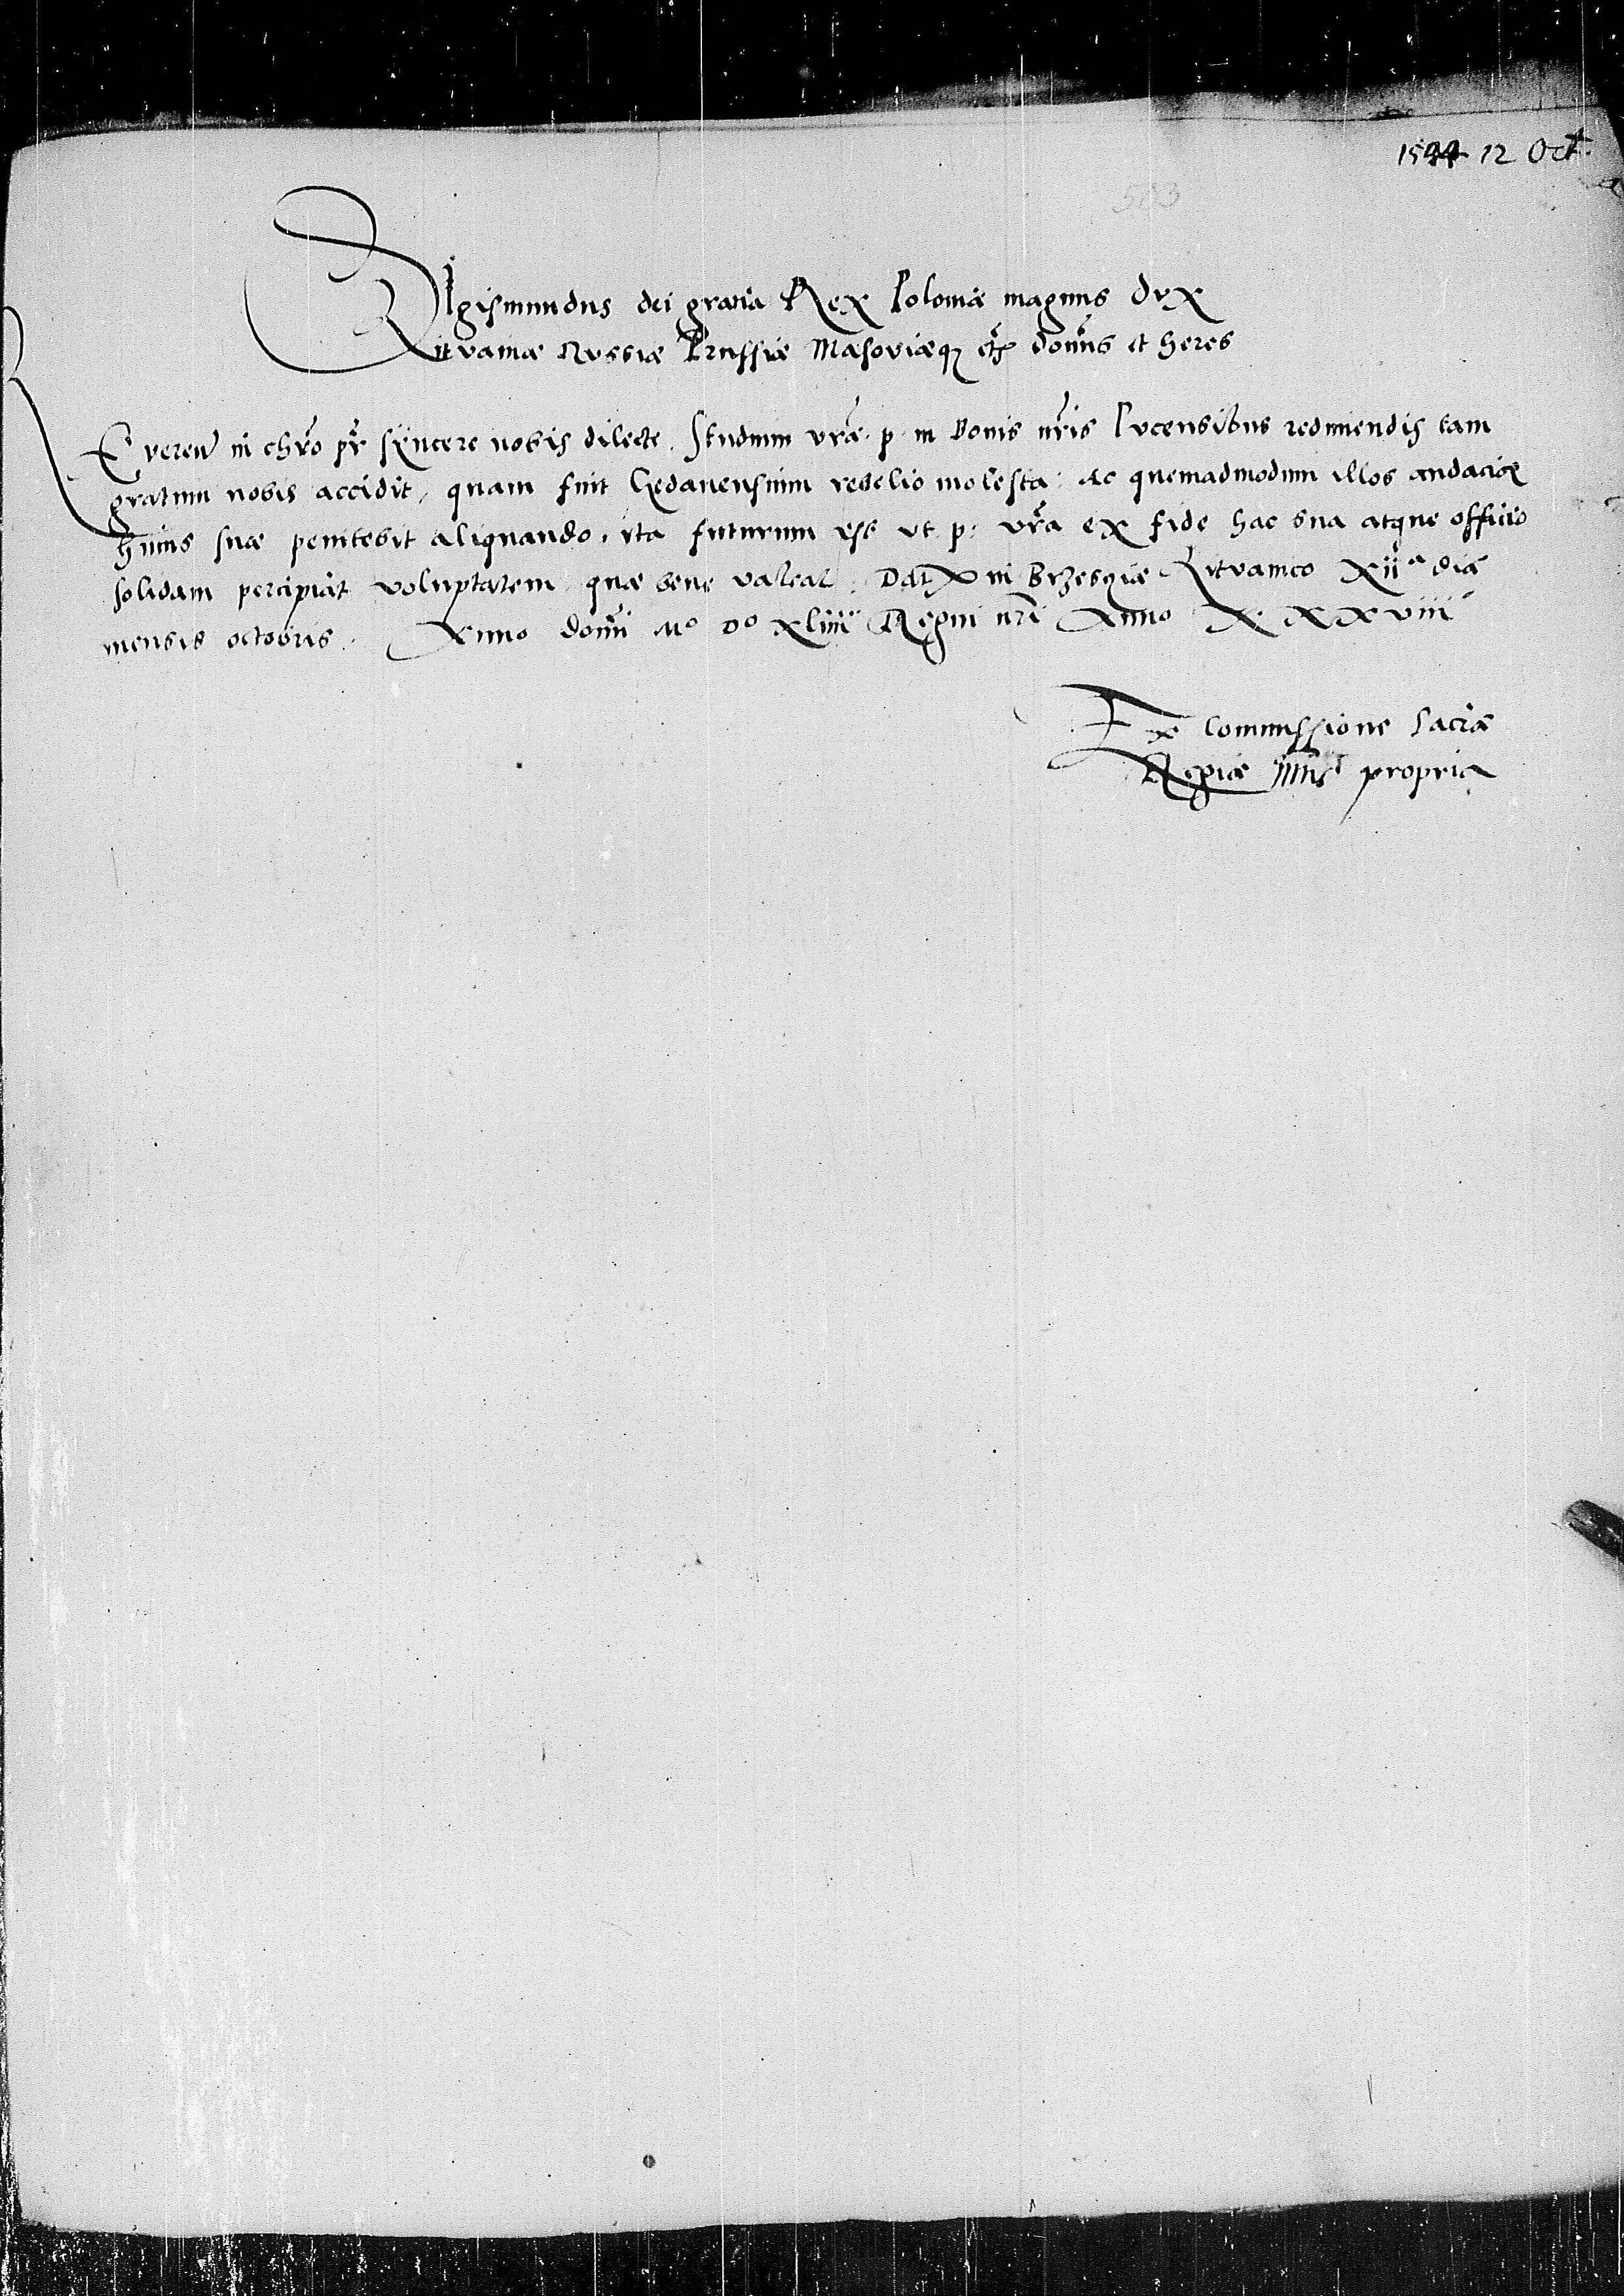 1544 12 Oct.
503
Sigismundus dei gratia Rex Poloniæ magnus dux
Lituaniæ Russiæ Prussiæ Masoviæq; etc̃ domũs et heres
Reveren̄ in chr̃o pr̃ syncere nobis dilecte. Studium vr̃æ p. in bonis nr̃is Pucensibus redimendis tam
gratum nobis accidit, quam fuit Gedanensium rebelio molesta: Ac quemadmodum illos audaciæ
huius suæ penitebit aliquando, ita futurum ess̃ ut p: vr̃a ex fide hac sua atque officio
solidam percipiat voluptatem quæ bene valeat. Dat in Brzesciæ Lituanico XIIa dia
mensis octobris. Anno domĩ Mo Do xliiii Regni nr̃i Anno XXXviii
Ex Commissione Sacræ
Regiæ Mtis propria